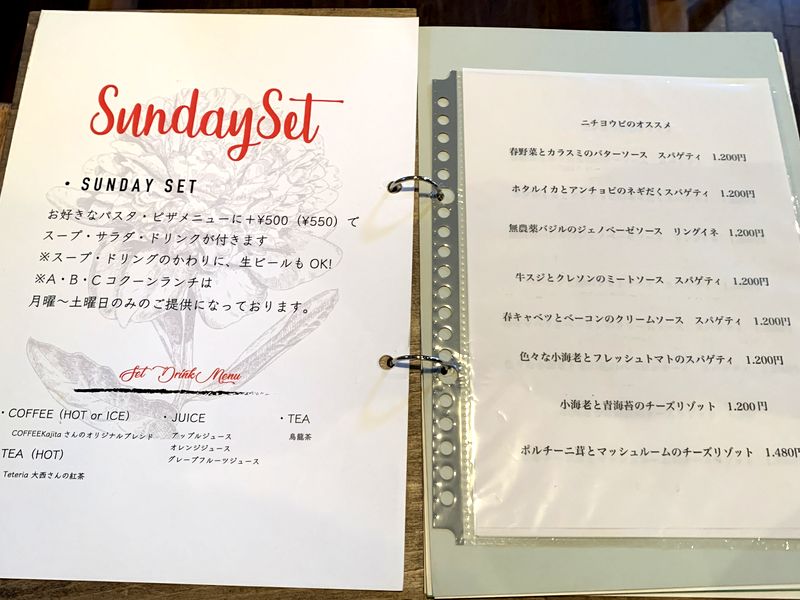 Sunday Set
・SUNDAY SET
お好きなパスタ・ピザメニューに＋¥500（¥550）で
スープ・サラダ・ドリンクが付きます
※スープ・ドリングのかわりに、生ビールもOK!
※A・B・Cコクーンランチは
月曜〜土曜日のみのご提供になっております。
Set Drink Menu
・COFFEE（HOT or ICE）
COFFEEKajitaさんのオリジナルブレンド
TEA（HOT）
Teteria 大西さんの紅茶
・JUICE
アップルジュース
オレンジジュース
グレープフルーツジュース
・TEA
烏龍茶
ニチヨウビのオススメ
春野菜とカラスミのバターソース　スパゲティ　1.200円
ホタルイカとアンチョビのネギだくスパゲティ　1.200円
無農薬バジルのジェノベーゼソース　リングイネ　1.200円
牛スジとクレソンのミートソース　スパゲティ　1.200円
春キャベツとベーコンのクリームソース　スパゲティ　1.200円
色々な小海老とフレッシュトマトのスパゲティ　1.200円
小海老と青海苔のチーズリゾット　1.200円
ポルチーニ茸とマッシュルームのチーズリゾット　1.480円